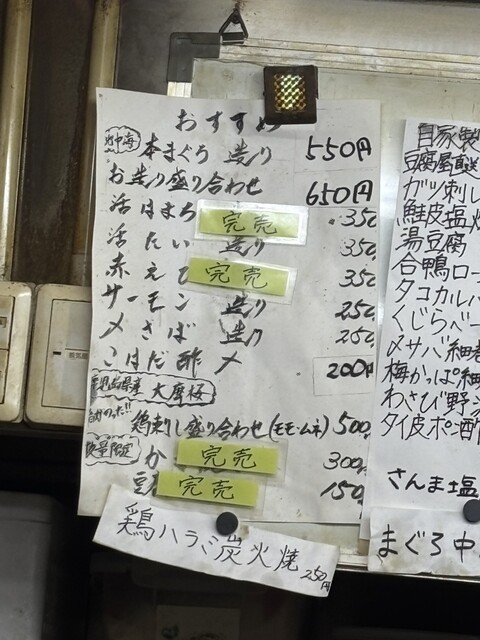 おすすめ
地中海 本まぐろ 造り 550円
お造り盛り合わせ 650円
活はまち 完売 350
活たい 造り 350
赤えび 完売 350
サーモン 造り 250
〆さば 造り 250
こはだ酢〆 200円
鹿児島県産 大摩桜
鶏刺し盛り合わせ(モモ・ムネ) 500
数量限定 か 完売 300
豆 完売 150
鶏ハラミ炭火焼 250円
自家製
豆腐屋直送
ガツ刺し
鮭皮塩焼
湯豆腐
合鴨ロー
タコカルパ
くじらベー
〆サバ細巻
梅かっぱ細
わさび野
タイ皮ポン酢
さんま塩
まぐろ中